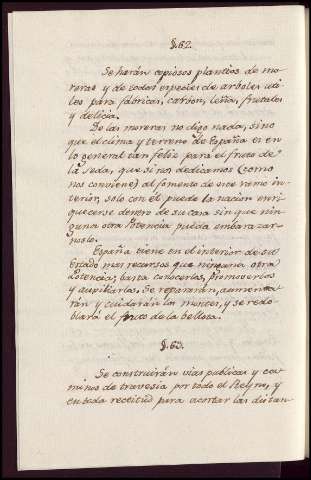 §.62.
Se harán copiosos plantios de mo-
reras y de todas especies de arboles uti-
les para fábricas, carbon, leña, frutales
y delicia.
De las moreras no digo nada, sino
que el clima y terreno de España es en
lo general tan feliz para el fruto de
la seda, que si nos dedicamos (como
nos conviene) al fomento de este ramo in-
terior, solo con el puede la nacion enri-
quecerse dentro de su casa sin que nin-
guna otra Potencia pueda embarazar-
noslo.
España tiene en el interior de su
Estado mas recursos que ninguna otra
Potencia; basta conocerlos, promoverlos
y auxiliarlos. Se repararán, aumenta-
rán y cuidarán los montes, y se redo-
blará el fruto de la bellota.
§.63.
Se construirán vias publicas y ca-
minos de travesia por todo el Reyno, y
en toda rectitud para acortar las distan-